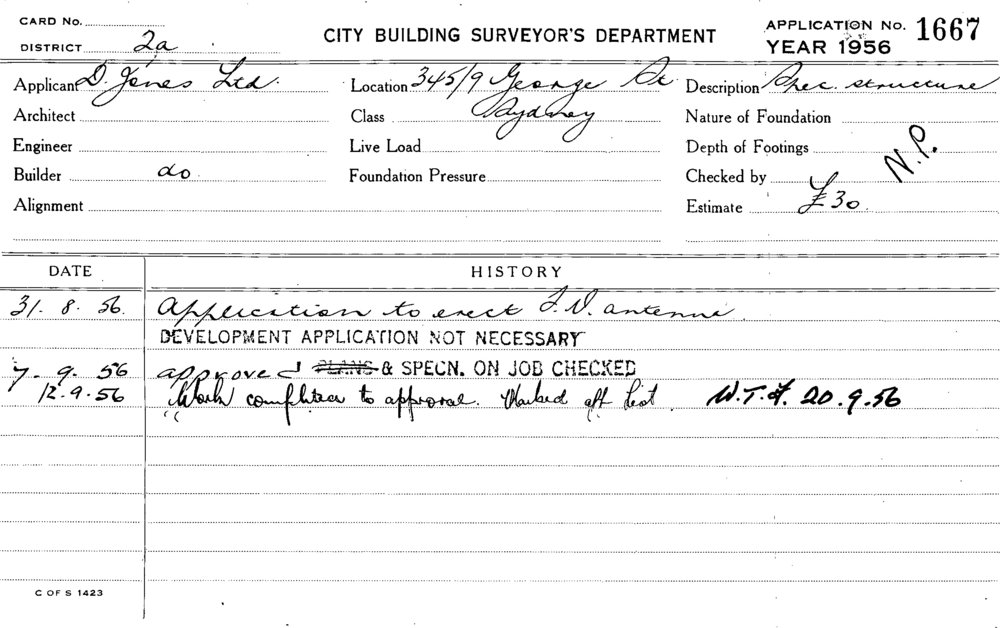 CARD No.
DISTRICT 2a
CITY BUILDING SURVEYOR'S DEPARTMENT
APPLICATION No. 1667
YEAR 1956
Applicant D. Jones Ltd.
Location 345/9 George St
Description Spec. structure
Architect
Class Sydney
Nature of Foundation
Engineer
Live Load
Depth of Footings
N.P.
Builder do
Foundation Pressure
Checked by
Alignment
Estimate £30
DATE HISTORY
31. 8. 56. Application to erect T.V. antenna.
DEVELOPMENT APPLICATION NOT NECESSARY
7. 9. 56 approved PLANS & SPECN. ON JOB CHECKED
12.9.56 Work completed to approval. Marked off list. W.T.F. 20.9.56
C OF S 1423